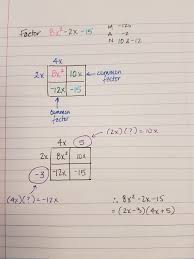 Factor 8x² - 2x - 15
M -120
A -2
N 10 & -12
4x
2x 8x² 10x ← common factor
-12x -15
↑
common
factor
(2x)(?) = 10x
4x 5
2x 8x² 10x
-3 -12x -15
(4x)(?) = -12x
∴ 8x² - 2x - 15
= (2x-3)(4x+5)